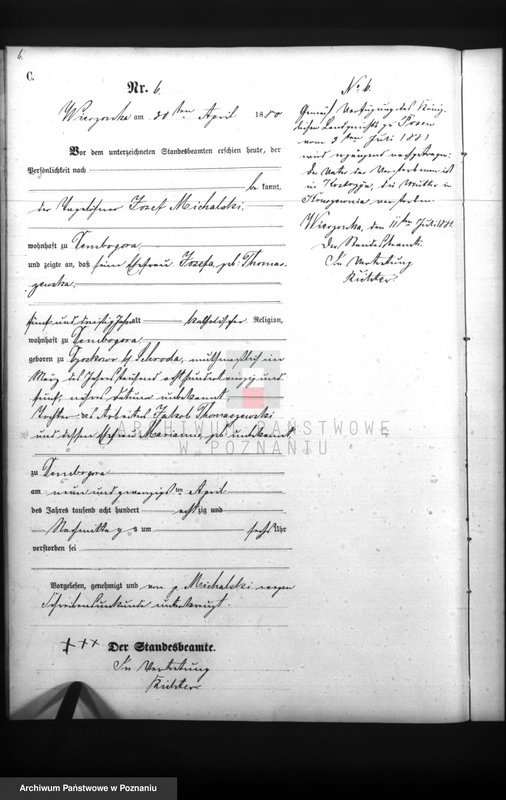 6.
C.
Nr. 6.
Wierzonka am 30 ten April 1880
Vor dem unterzeichneten Standesbeamten erschien heute, der
Persönlichkeit nach
be kannt,
der Tagelöhner Josef Michalski
wohnhaft zu Dembogora
und zeigte an, daß seine Ehefrau Josefa, geb. Thomas-
zewska,
fünf und dreißig Jahre alt katholischer Religion,
wohnhaft zu Dembogora
geboren zu bei Schroda, muthmaßlich im
März des Jahres tausend achthundert und
fünf, näheres Datum unbekannt,
Tochter des Arbeiters Jakob Thomaszewski
und dessen Ehefrau Marianna, geb. unbekannt,
zu Dembogora
am neun und zwanzigsten April
des Jahres tausend acht hundert achtzig und
Nachmittags um sechs Uhr
verstorben sei
Vorgelesen, genehmigt und von p. Michalski wegen
Schreibensunkunde unterkreuzt.
+++
Der Standesbeamte.
In Vertretung
Richter
No 6.
Gemäß Verfügung des König-
lichen Landgerichts zu Posen
vom ten Juli 1881
wird ergänzend nachgetragen:
der Vater der Verstorbenen ist
in, die Mutter in
verstorben.
Wierzonka, den 11ten Juli 1881
Der Standesbeamte.
In Vertretung
Richter
ARCHIWUM PAŃSTWOWE
W POZNANIU
Archiwum Państwowe w Poznaniu